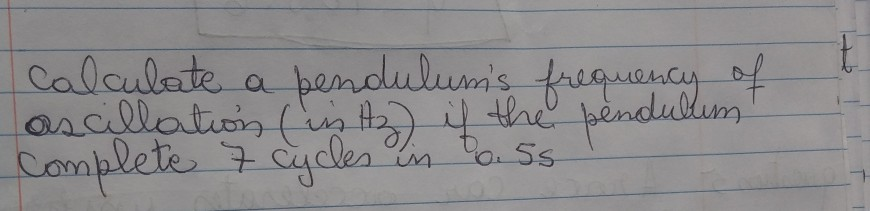 Calculate a pendulum's frequency of
oscillation (in Hz) if the pendulum
Complete 7 cycles in 0.5s
t